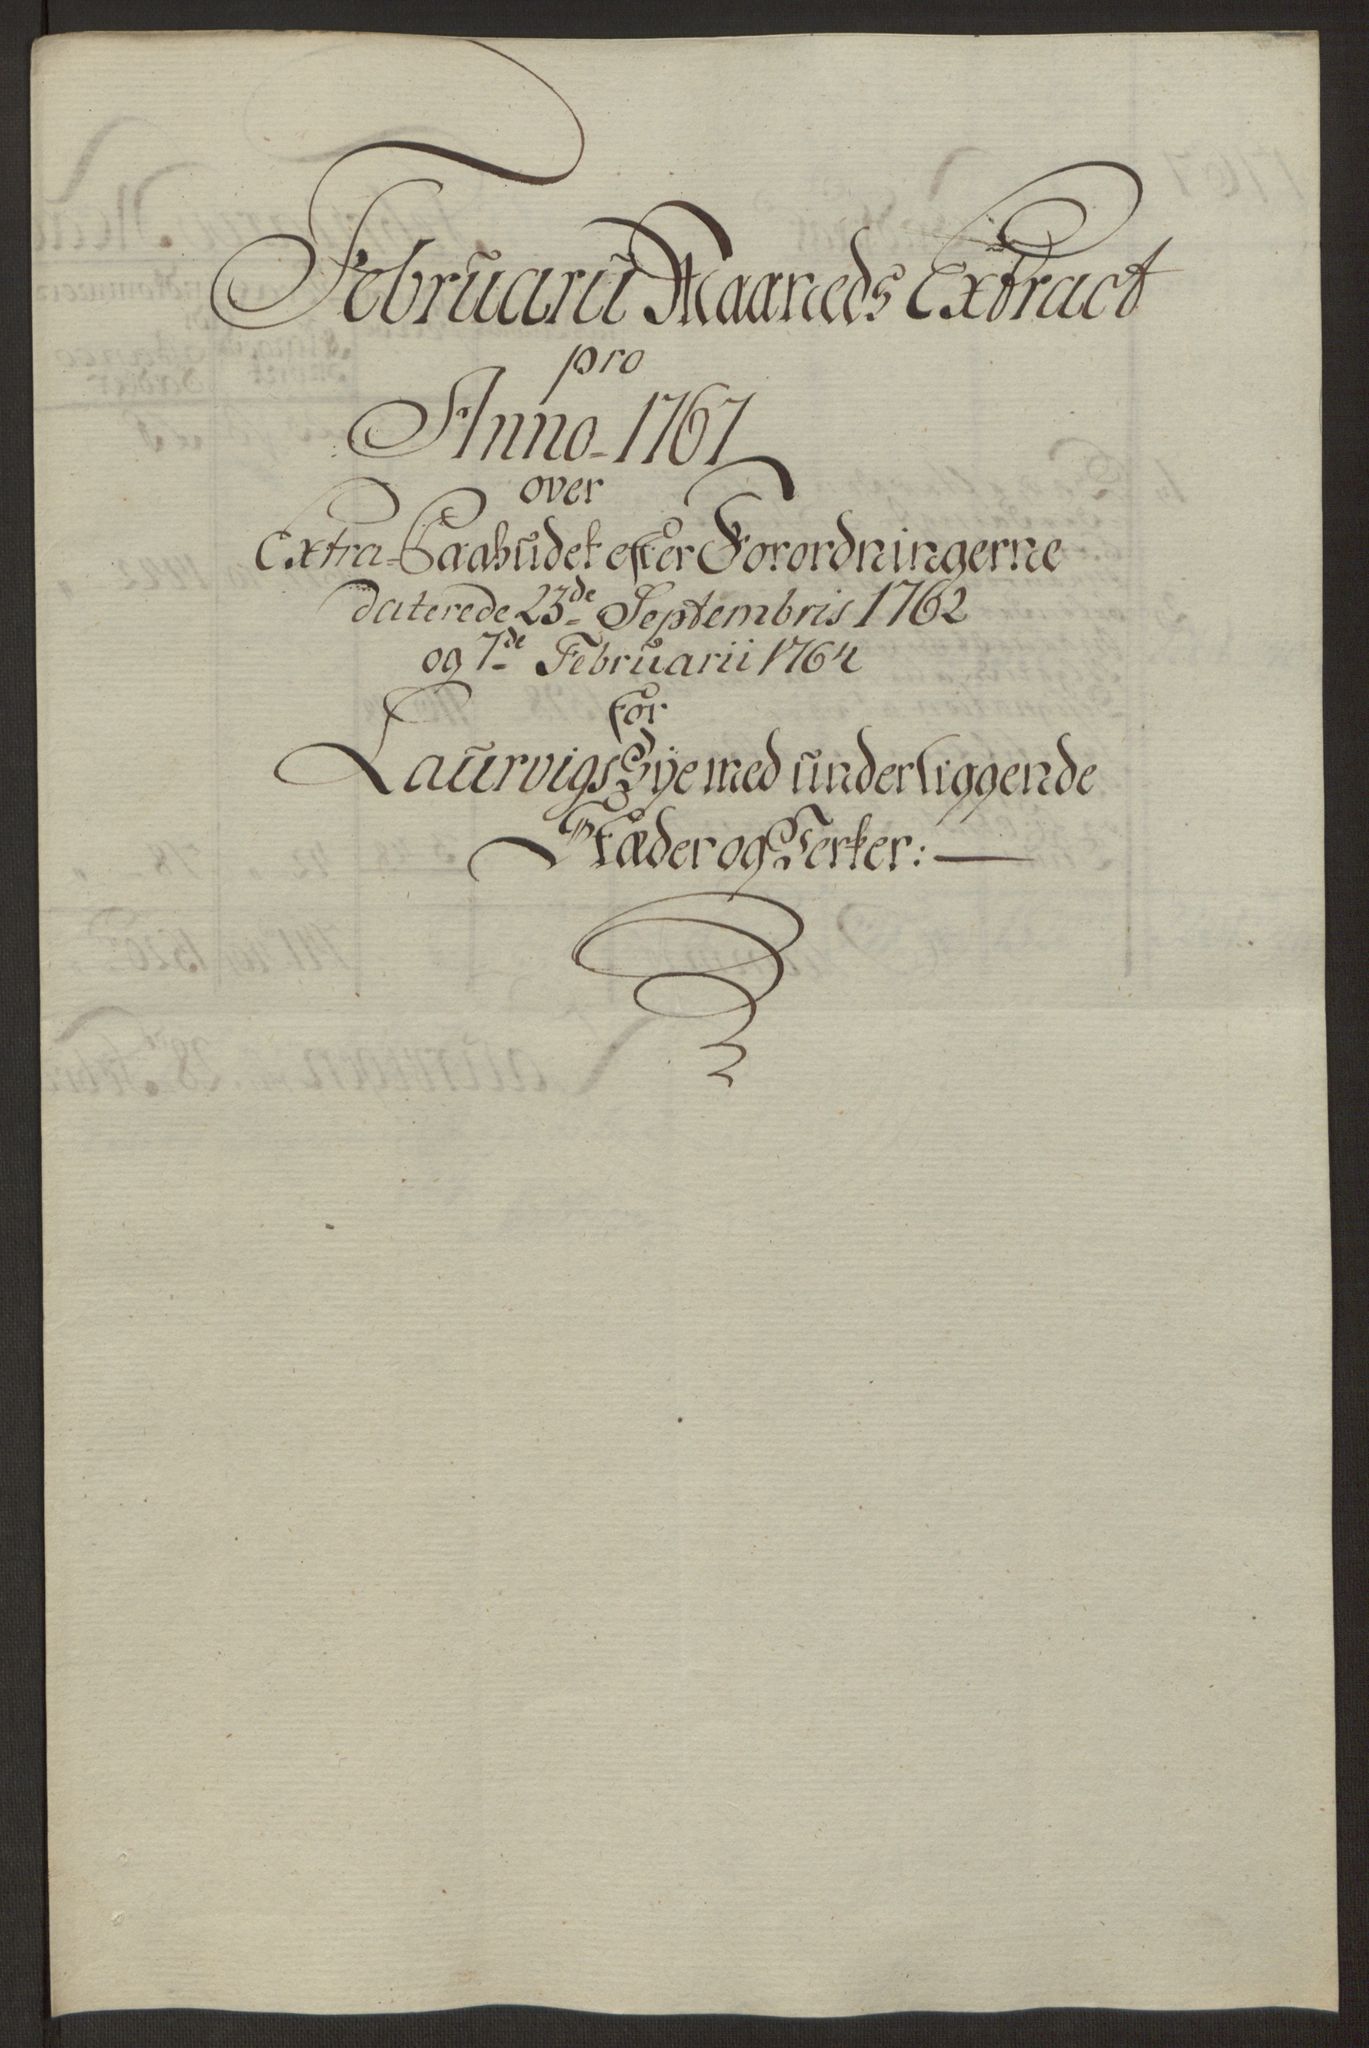 Februarii Maaneds Extract
pro
Anno 1767
over
Extra-Paabudet efter Forordningerne
daterede 23de Septembris 1762
og 7de Februarii 1764
for
Laurvigs Bye med underliggende
Stæder og